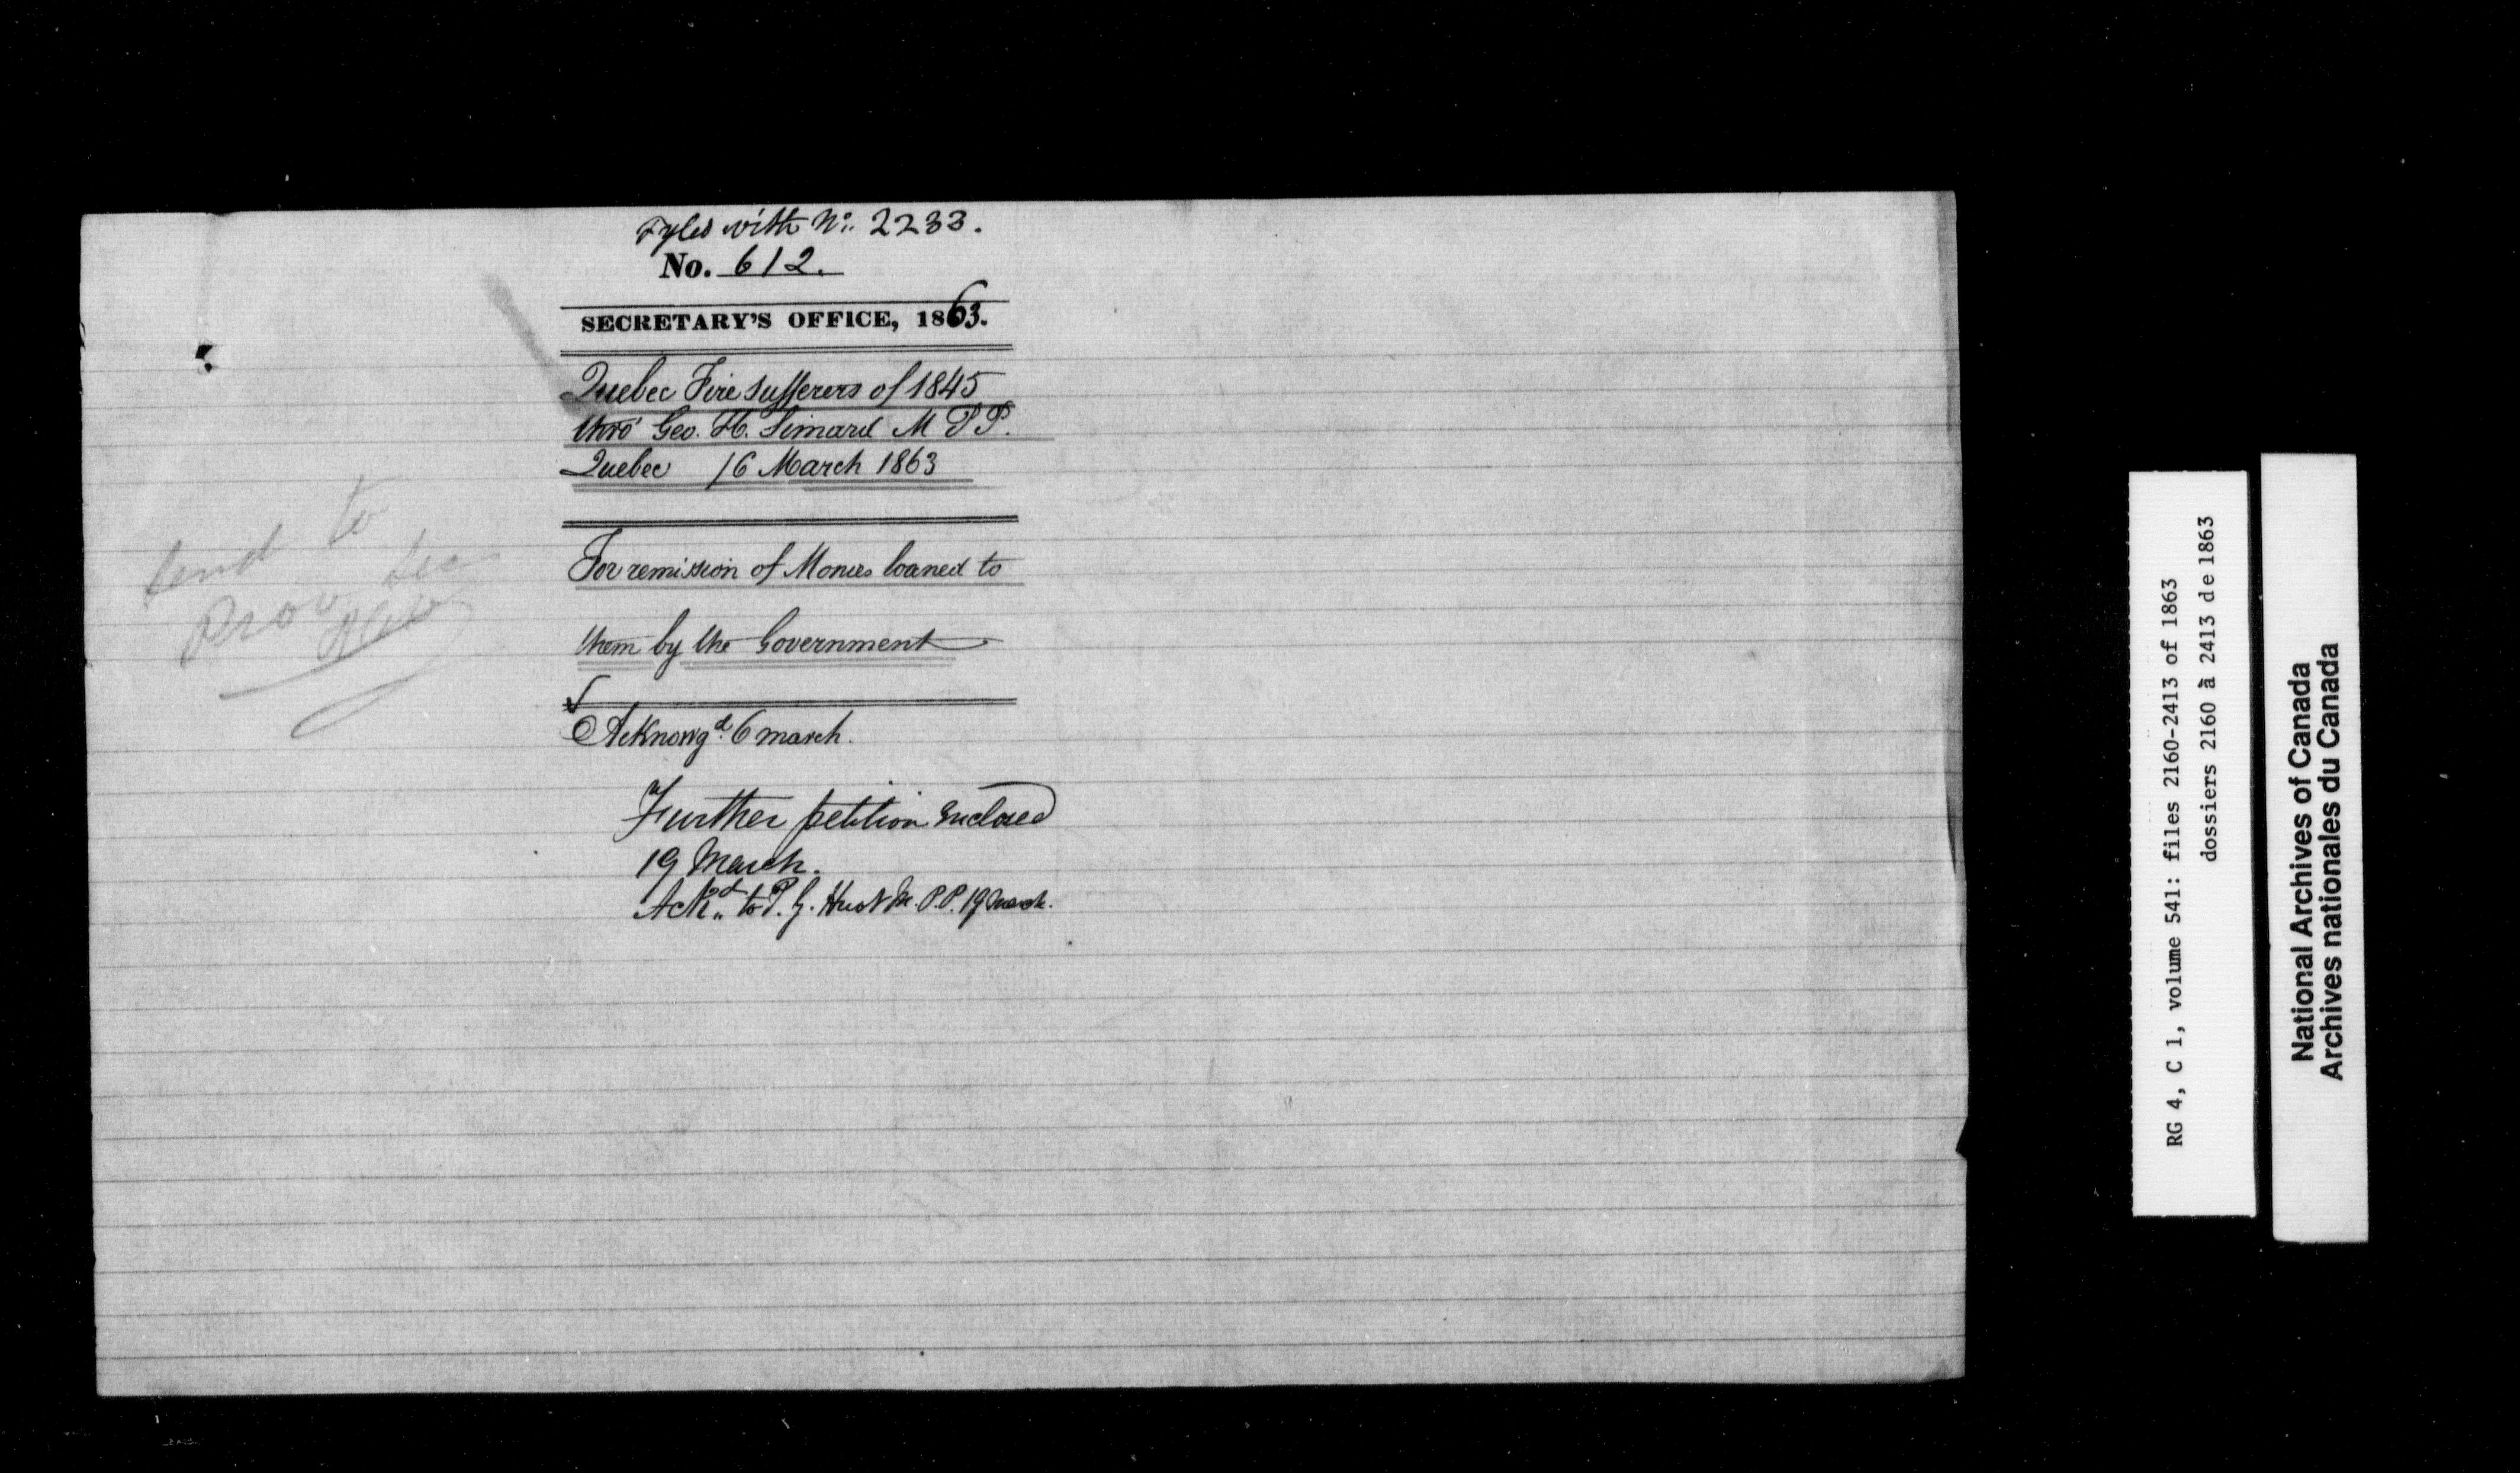 Fyled with No. 2233.
No. 612.
SECRETARY'S OFFICE, 1863.
Quebec Fire Sufferers of 1845
thro' Geo. H. Simard M P P.
Quebec 16 March 1863
For remission of Monies loaned to
them by the Government
Acknowgd. 6 march.
Further petition enclosed
19 March.
Ackd. to P. G. Huot M. P.P. 19 March.
Send to
Prov Sec
RG 4, C 1, volume 541: files 2160-2413 of 1863
dossiers 2160 à 2413 de 1863
National Archives of Canada
Archives nationales du Canada